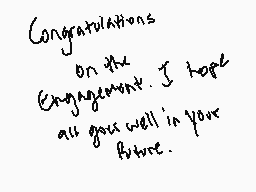 Congratulations
on the
Engagement. I hope
all goes well in your
future.